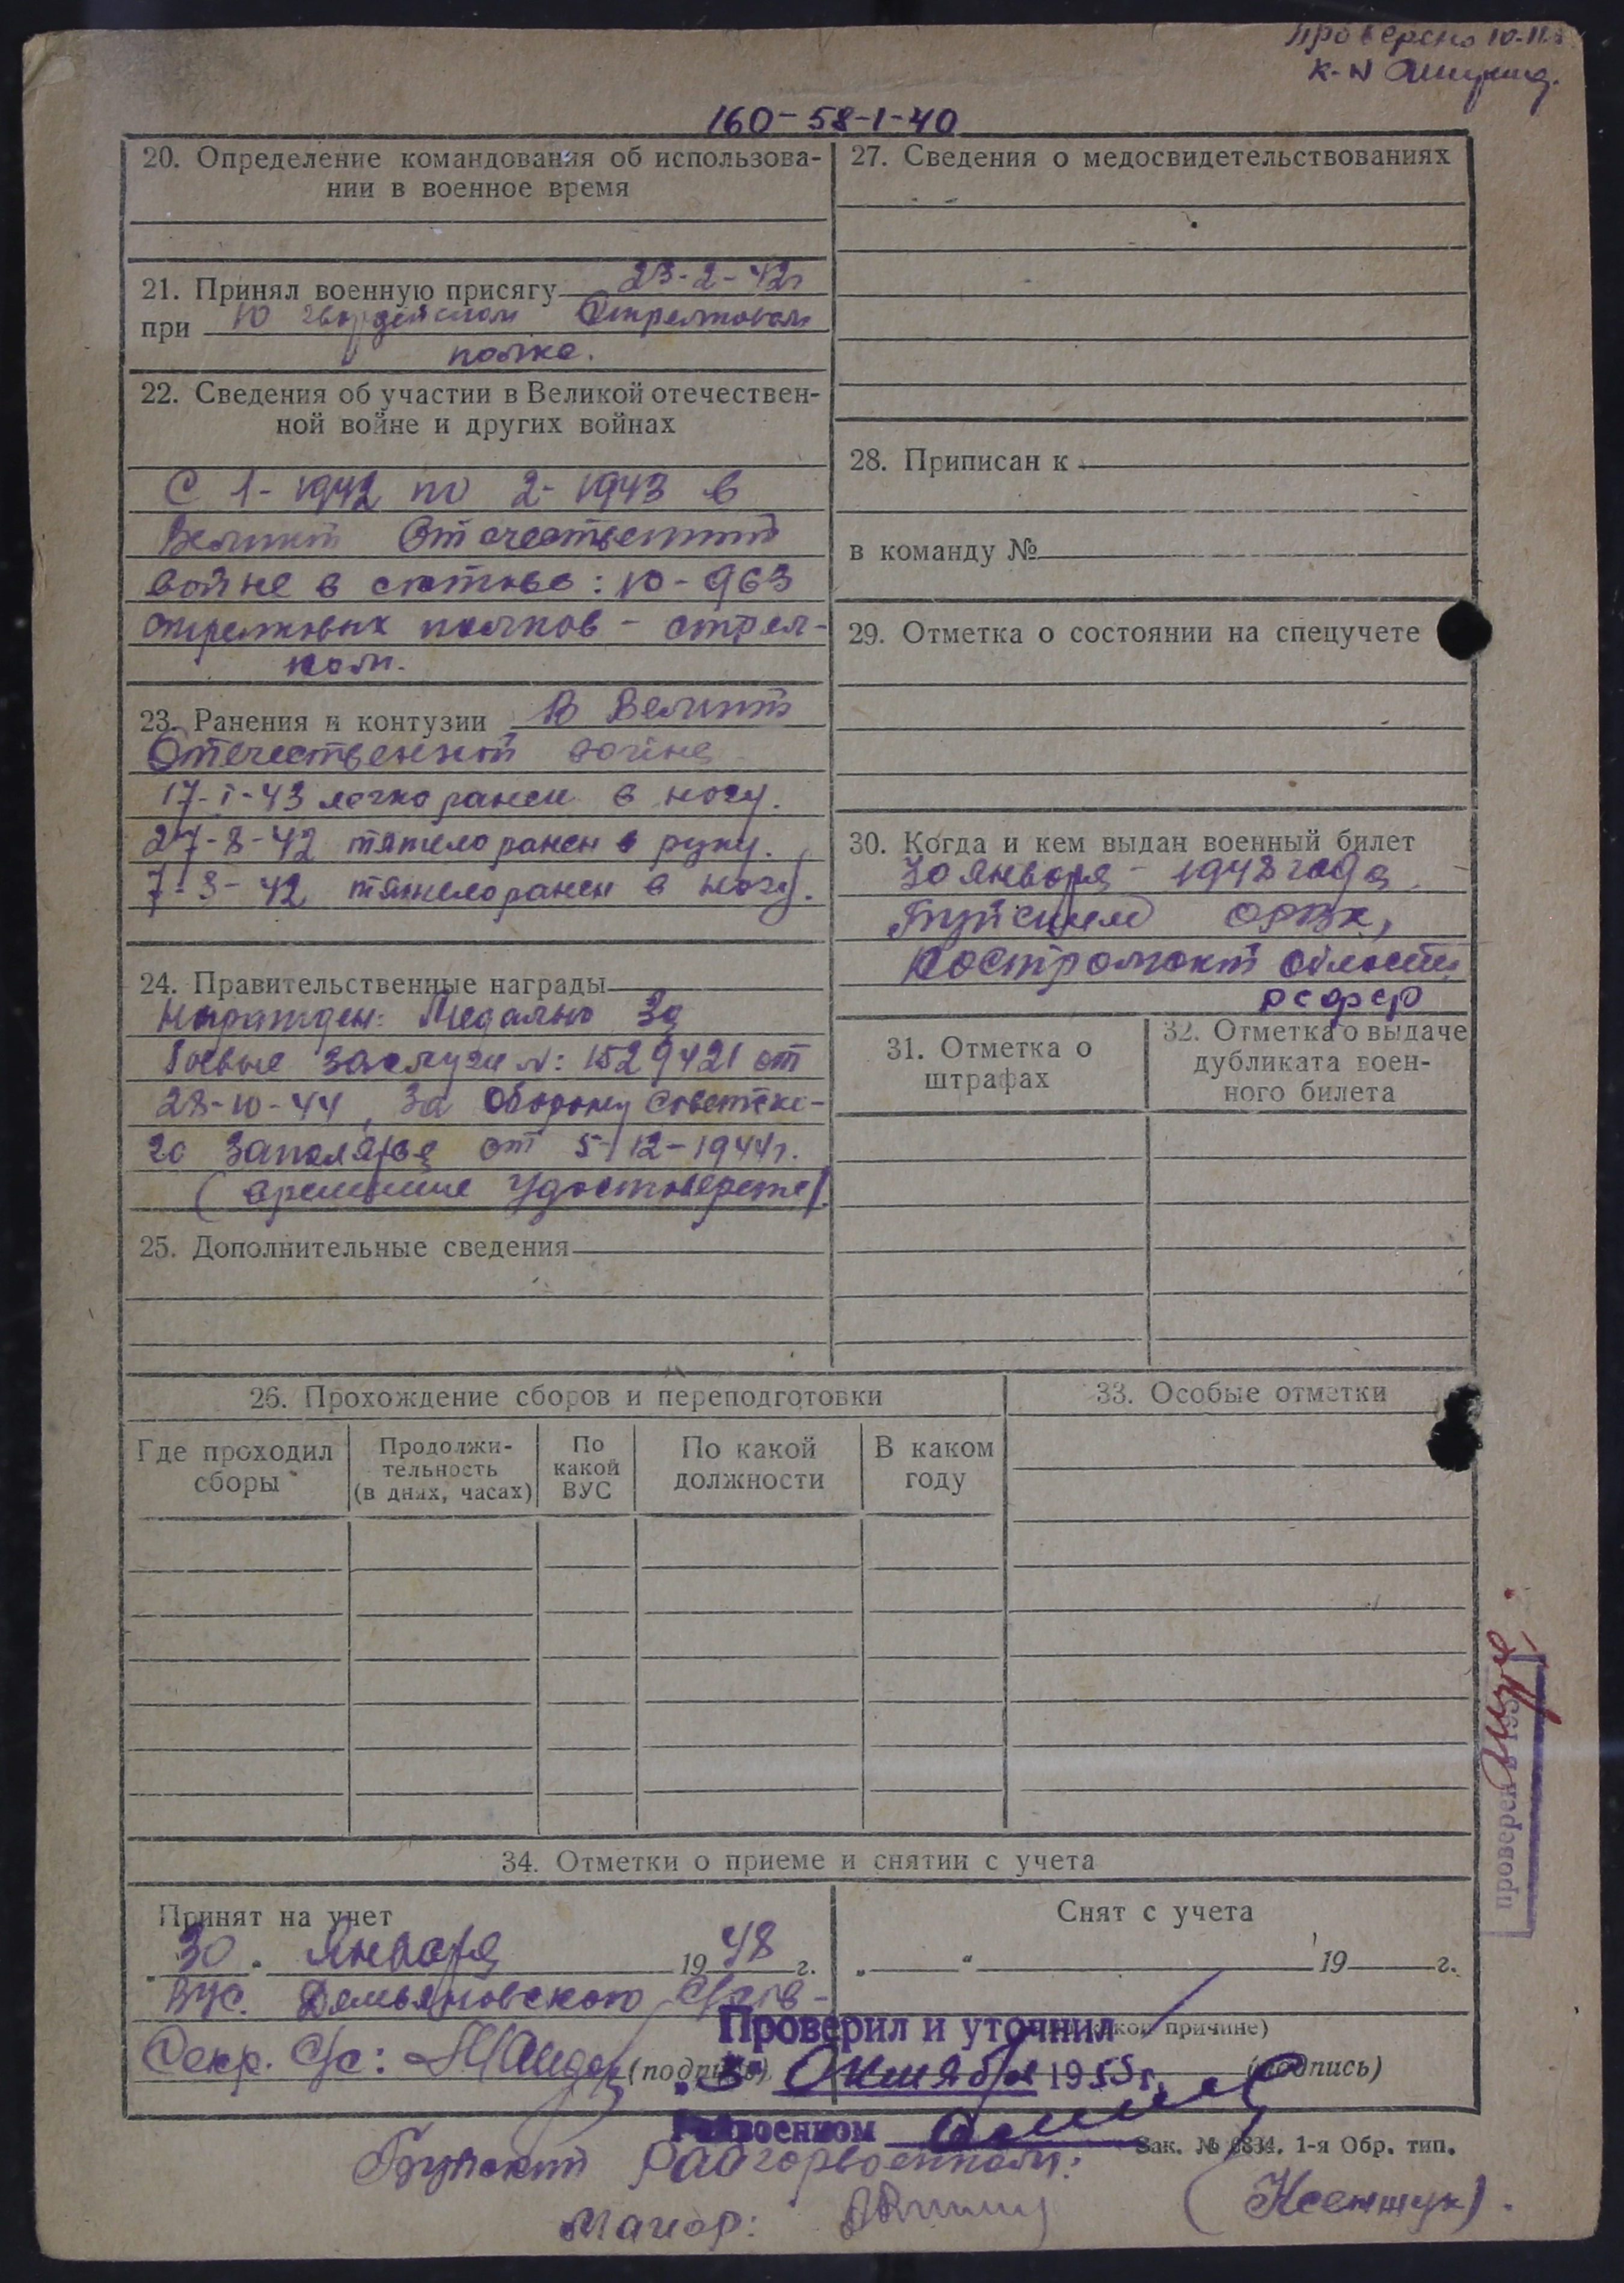 Проверено 10-11
К-н
160-58-1-40
20. Определение командования об использова-
нии в военное время
21. Принял военную присягу 23-2-42г
при 10 гвардейском Стрелковом
полке.
22. Сведения об участии в Великой отечествен-
ной войне и других войнах
С 1-1942 по 2-1943 в
Великой Отечественной
войне в составе: 10-963
стрелковых полков - стрел-
ком.
23. Ранения и контузии В Великой
Отечественной войне
17-I-43 легко ранен в ногу.
27-8-42 тяжело ранен в руку.
7-3-42 тяжело ранен в ногу.
24. Правительственные награды
Награжден: Медалью За
боевые заслуги N: 1529421 от
28-10-44, За Оборону Советско-
го Заполярья от 5-12-1944г.
(временное удостоверение)
25. Дополнительные сведения
27. Сведения о медосвидетельствованиях
28. Приписан к
в команду №
29. Отметка о состоянии на спецучете
30. Когда и кем выдан военный билет
30 января - 1948 года
Буйским ОРВК,
Костромской области
РСФСР
31. Отметка о
штрафах
32. Отметка о выдаче
дубликата воен-
ного билета
26. Прохождение сборов и переподготовки
Где проходил
сборы
Продолжи-
тельность
(в днях, часах)
По
какой
ВУС
По какой
должности
В каком
году
33. Особые отметки
проверен в 195
34. Отметки о приеме и снятии с учета
Принят на учет
"30" Января 1948 г.
ВУС. Демьяновского С/сов-
Секр. С/с: (подпись)
Снят с учета
„ “ 19 г.
какой причине)
(подпись)
Проверил и уточнил
"5" Октября 1955 г.
Райвоенком
Зак. № 6834. 1-я Обр. тип.
Буйский Райгорвоенком:
Майор: (Ксенжук).